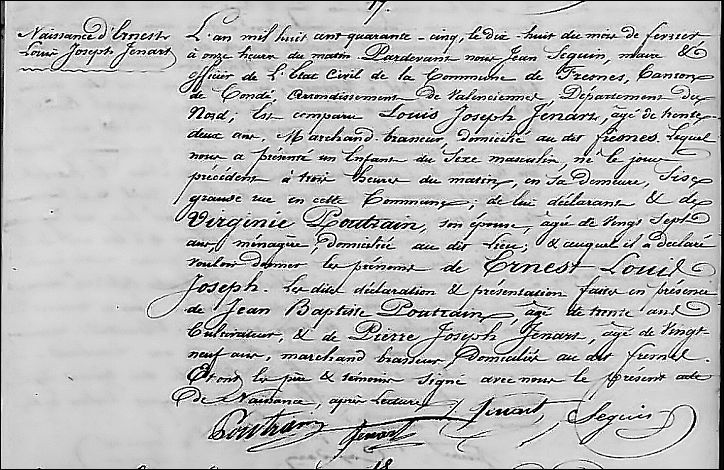 17.
Naissance d'Ernest
Louis Joseph Jenart
L'an mil huit cent quarante-cinq, le dix-huit du mois de fevrier
à onze heures du matin Pardevant nous Jean Seguin, maire &
officier de l'Etat Civil de la Commune de Fresnes, Canton
de Condé, Arrondissement de Valenciennes, Département du
Nord, Est comparu Louis Joseph Jenart, âgé de trente
deux ans, Marchand brasseur, domicilié au dit fresnes. Lequel
nous a présenté un Enfant du Sexe masculin, né le jour
précédent à trois heures du matin, en sa demeure, sise
grande rue en cette Commune; de lui déclarant & de
Virginie Poutrain, son épouse, âgée de vingt sept
ans, ménagère, domiciliée au dit lieu; & auquel il a déclaré
vouloir donner les prénoms de Ernest Louis
Joseph. Les dites déclaration & présentation faites en présence
de Jean Baptiste Poutrain, âgé de trente ans
Cultivateur, & de Pierre Joseph Jenart, âgé de vingt-
neuf ans, marchand brasseur, domicilié au dit fresnes.
Et ont les père & témoins signé avec nous le présent acte
de Naissance, après lecture
Poutrain Jenart Jenart Seguin
18.